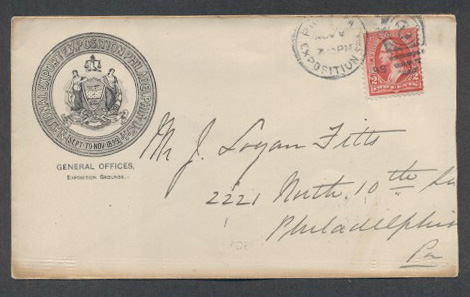 NATIONAL EXPORT EXPOSITION PHILADELPHIA
SEPT. TO NOV. 1899
GENERAL OFFICES,
EXPOSITION GROUNDS.
EXPOSITION
PM
2
Mr J. Logan Fitts
2221 North 10th
Philadelphia
Pa